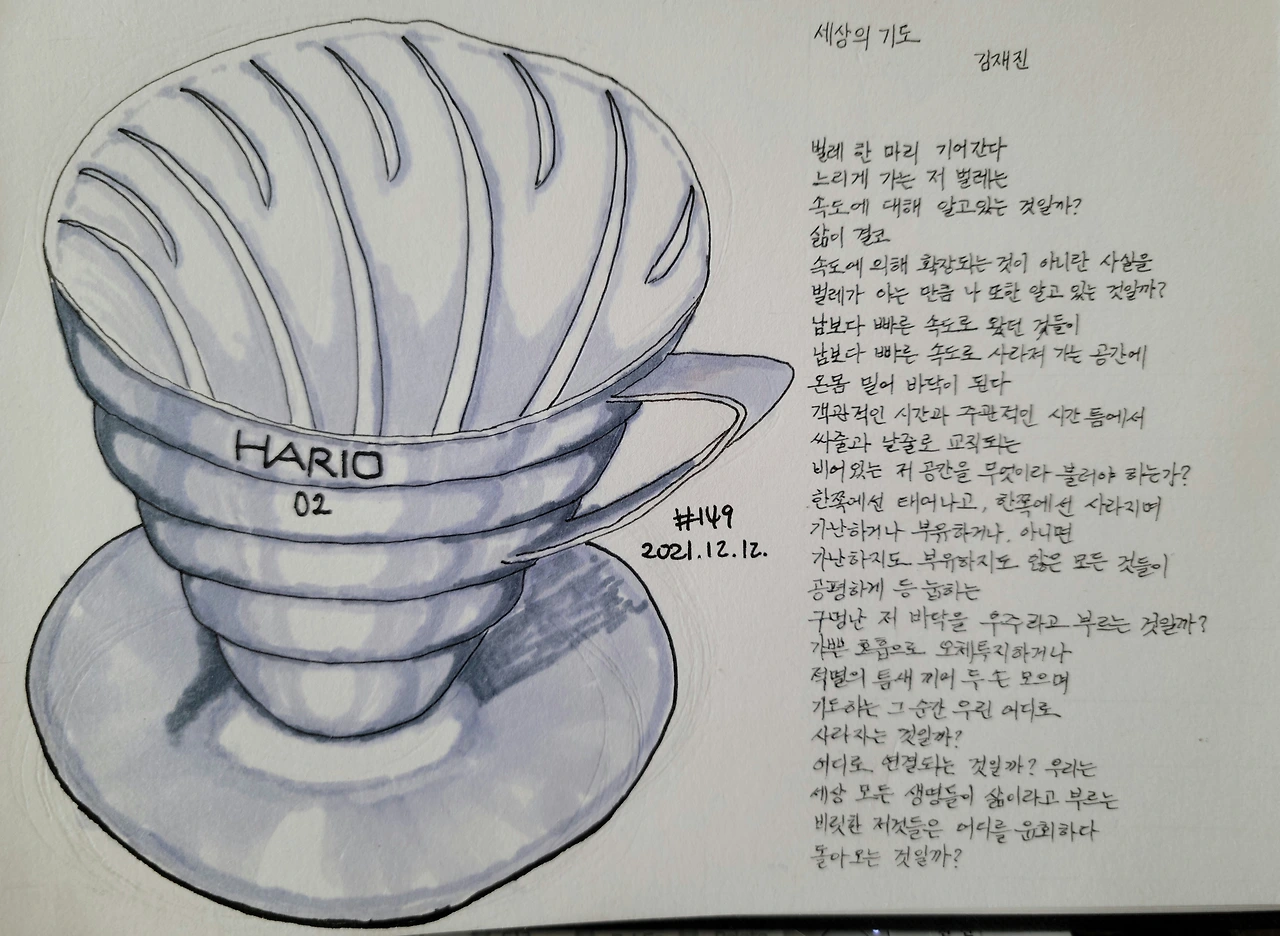 HARIO
02
#149
2021.12.12.
세상의 기도
김재진
벌레 한 마리 기어간다
느리게 가는 저 벌레는
속도에 대해 알고있는 것일까?
삶이 결코
속도에 의해 확장되는 것이 아니란 사실을
벌레가 아는 만큼 나 또한 알고 있는 것일까?
남보다 빠른 속도로 왔던 것들이
남보다 빠른 속도로 사라져 가는 공간에
온몸 밀어 바닥이 된다
객관적인 시간과 주관적인 시간 틈에서
씨줄과 날줄로 교직되는
비어있는 저 공간을 무엇이라 불러야 하는가?
한쪽에선 태어나고, 한쪽에선 사라지며
가난하거나 부유하거나, 아니면
가난하지도 부유하지도 않은 모든 것들이
공평하게 등 눕히는
구멍난 저 바닥을 우주라고 부르는 것일까?
가쁜 호흡으로 오체투지하거나
적멸의 틈새 끼어 두 손 모으며
기도하는 그 순간 우린 어디로
사라지는 것일까?
어디로 연결되는 것일까? 우리는
세상 모든 생명들이 삶이라고 부르는
비릿한 저것들은 어디를 윤회하다
돌아오는 것일까?